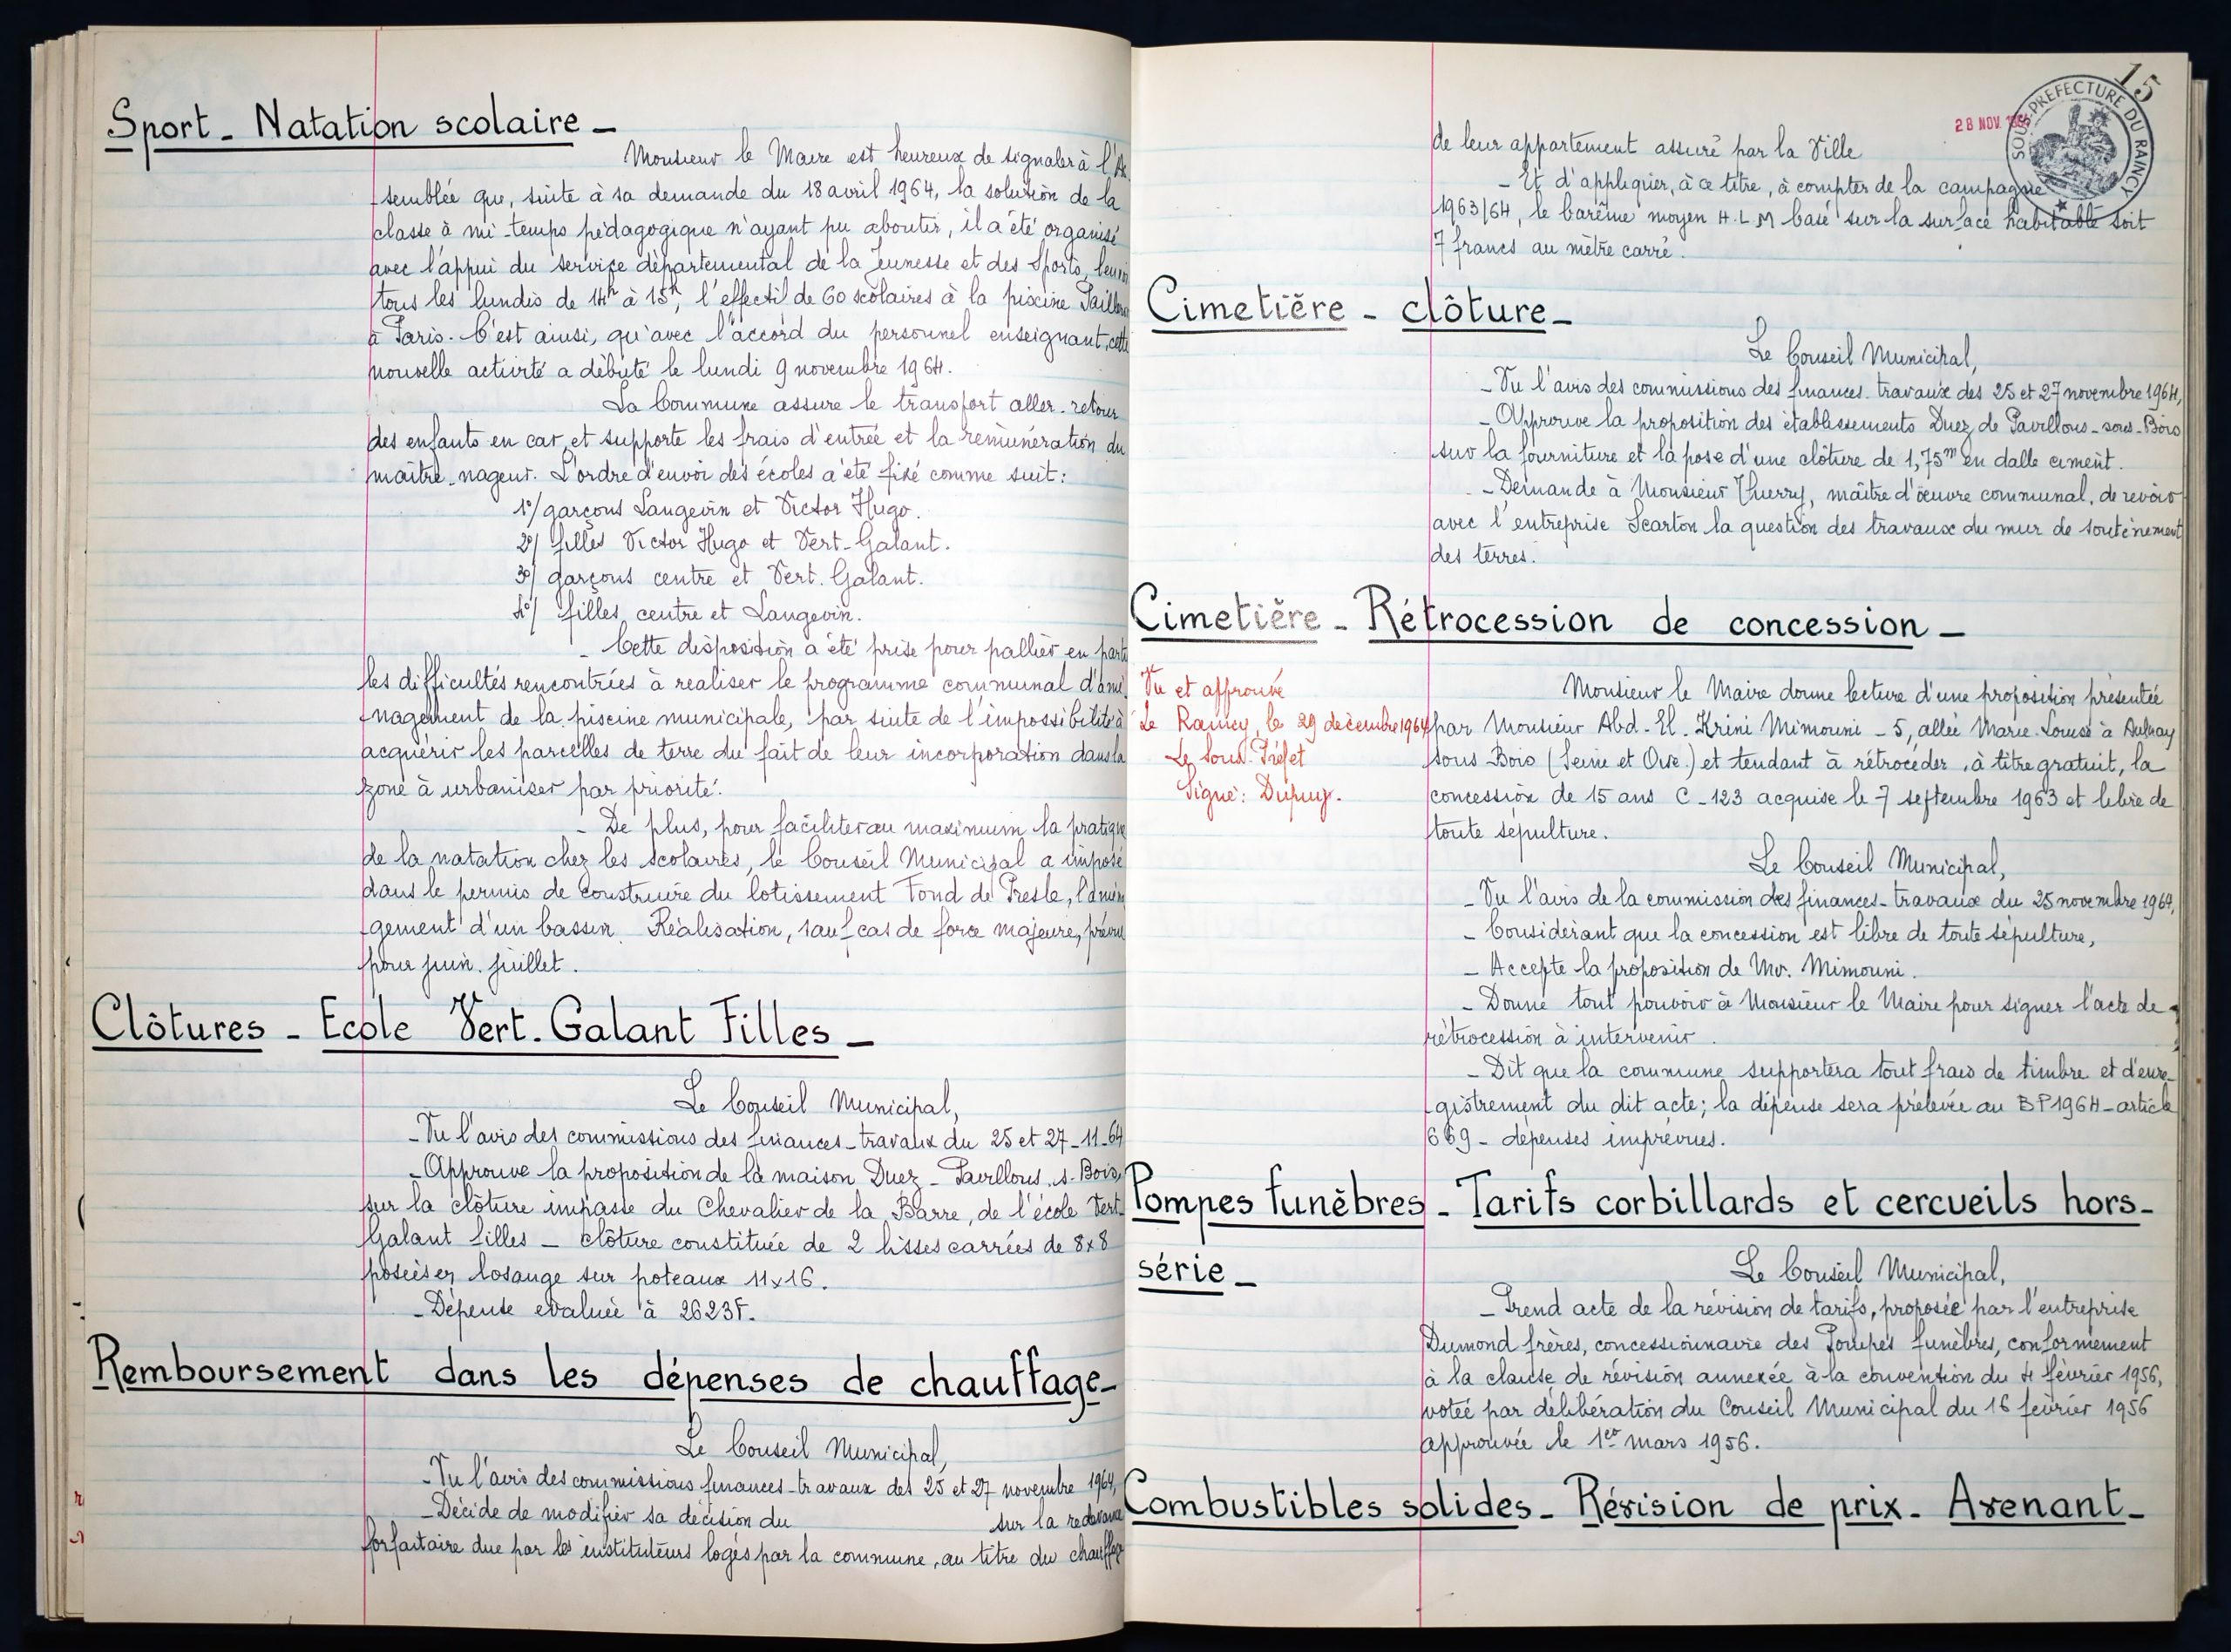 Sport - Natation scolaire -
Monsieur le Maire est heureux de signaler à l'As
semblée que, suite à sa demande du 18 avril 1964, la solution de la
classe à mi-temps pédagogique n'ayant pu aboutir, il a été organisé
avec l'appui du service départemental de la Jeunesse et des Sports,
tous les lundis de 14h à 15h, l'effectif de 60 scolaires à la piscine
à Paris. C'est ainsi, qu'avec l'accord du personnel enseignant, cette
nouvelle activité a débuté le lundi 9 novembre 1964.
La Commune assure le transport aller-retour
des enfants en car, et supporte les frais d'entrée et la rémunération du
maître-nageur. L'ordre d'envoi des écoles a été fixé comme suit :
1°/ garçons Langevin et Victor Hugo.
2°/ filles Victor Hugo et Vert-Galant.
3°/ garçons centre et Vert.Galant.
4°/ filles centre et Langevin.
- Cette disposition a été prise pour pallier en partie
les difficultés rencontrées à réaliser le programme communal d'amé
-nagement de la piscine municipale, par suite de l'impossibilité à
acquérir les parcelles de terre du fait de leur incorporation dans la
zone à urbaniser par priorité.
- De plus, pour faciliter au maximum la pratique
de la natation chez les scolaires, le Conseil Municipal a imposé
dans le permis de construire du lotissement Fond de Presle, l'aména
-gement d'un bassin. Réalisation, sauf cas de force majeure, prévue
pour juin.juillet.
Clôtures - Ecole Vert.Galant Filles -
Le Conseil Municipal,
- Vu l'avis des commissions des finances-travaux du 25 et 27-11-64
- Approuve la proposition de la maison Duez - Pavillons.s.Bois,
sur la clôture impasse du Chevalier de la Barre, de l'école Vert.
Galant filles - clôture constituée de 2 lisses carrées de 8x8
posées en losange sur poteaux 11x16.
- Dépense évaluée à 2623F.
Remboursement dans les dépenses de chauffage -
Le Conseil Municipal,
- Vu l'avis des commissions finances-travaux des 25 et 27 novembre 1964,
- Décide de modifier sa décision du sur la redevance
forfaitaire due par les instituteurs logés par la commune, au titre du chauffage
15
28 NOV.
SOUS-PREFECTURE DU RAINCY
de leur appartement assuré par la Ville
- Et d'appliquer, à ce titre, à compter de la campagne
1963/64, le barème moyen H.L.M basé sur la surface habitable soit
7 francs au mètre carré.
Cimetière - clôture -
Le Conseil Municipal,
- Vu l'avis des commissions des finances-travaux des 25 et 27 novembre 1964,
- Approuve la proposition des établissements Duez de Pavillons-sous-Bois
sur la fourniture et la pose d'une clôture de 1,75m en dalle ciment.
- Demande à Monsieur Thierry, maître d'œuvre communal, de revoir
avec l'entreprise Scarton la question des travaux du mur de soutènement
des terres.
Cimetière - Rétrocession de concession -
Vu et approuvé
Le Raincy, le 29 décembre 1964
Le Sous-Préfet
Signé : Dupuy.
Monsieur le Maire donne lecture d'une proposition présentée
par Monsieur Abd-El.Krini Mimouni - 5, allée Marie-Louise à Aulnay
sous Bois (Seine et Oise.) et tendant à rétrocéder, à titre gratuit, la
concession de 15 ans C-123 acquise le 7 septembre 1963 et libre de
toute sépulture.
Le Conseil Municipal,
- Vu l'avis de la commission des finances-travaux du 25 novembre 1964,
- Considérant que la concession est libre de toute sépulture,
- Accepte la proposition de Mr. Mimouni.
- Donne tout pouvoir à Monsieur le Maire pour signer l'acte de
rétrocession à intervenir.
- Dit que la commune supportera tout frais de timbre et d'enre-
-gistrement du dit acte; la dépense sera prélevée au BP1964-article
669 - dépenses imprévues.
Pompes funèbres - Tarifs corbillards et cercueils hors-
série -
Le Conseil Municipal,
- Prend acte de la révision de tarifs, proposée par l'entreprise
Dumond frères, concessionnaire des Pompes funèbres, conformément
à la clause de révision annexée à la convention du 4 février 1956,
votée par délibération du Conseil Municipal du 16 février 1956
approuvée le 1er mars 1956.
Combustibles solides - Révision de prix - Avenant -